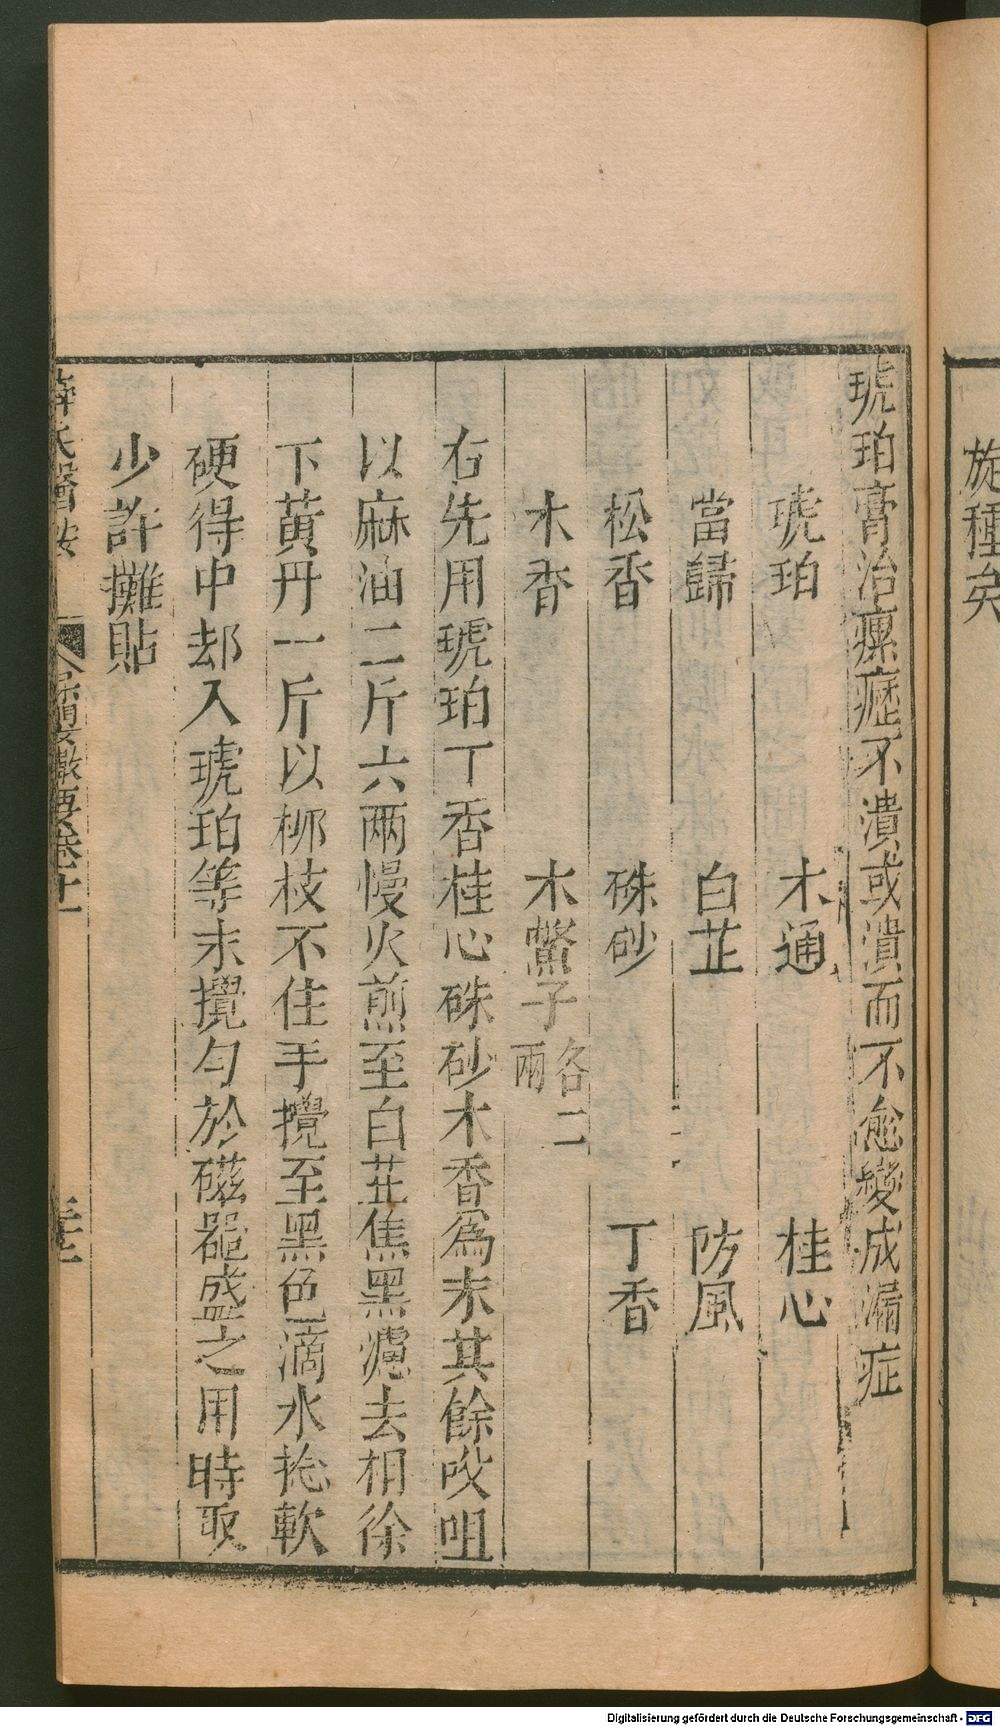 旋種矣
琥珀膏治瘰癧不潰或潰而不愈變成漏症
琥珀　木通　桂心
當歸　白芷　防風
松香　硃砂　丁香
木香　木鱉子各二兩
右先用琥珀丁香桂心硃砂木香為末其餘㕮咀
以麻油二斤六兩慢火煎至白芷焦黑濾去柤徐
下黃丹一斤以柳枝不住手攪至黑色滴水捻軟
硬得中却入琥珀等末攪勻於磁器盛之用時取
少許攤貼
薛氏醫按 保嬰撮要卷十一 三十七
Digitalisierung gefördert durch die Deutsche Forschungsgemeinschaft - DFG